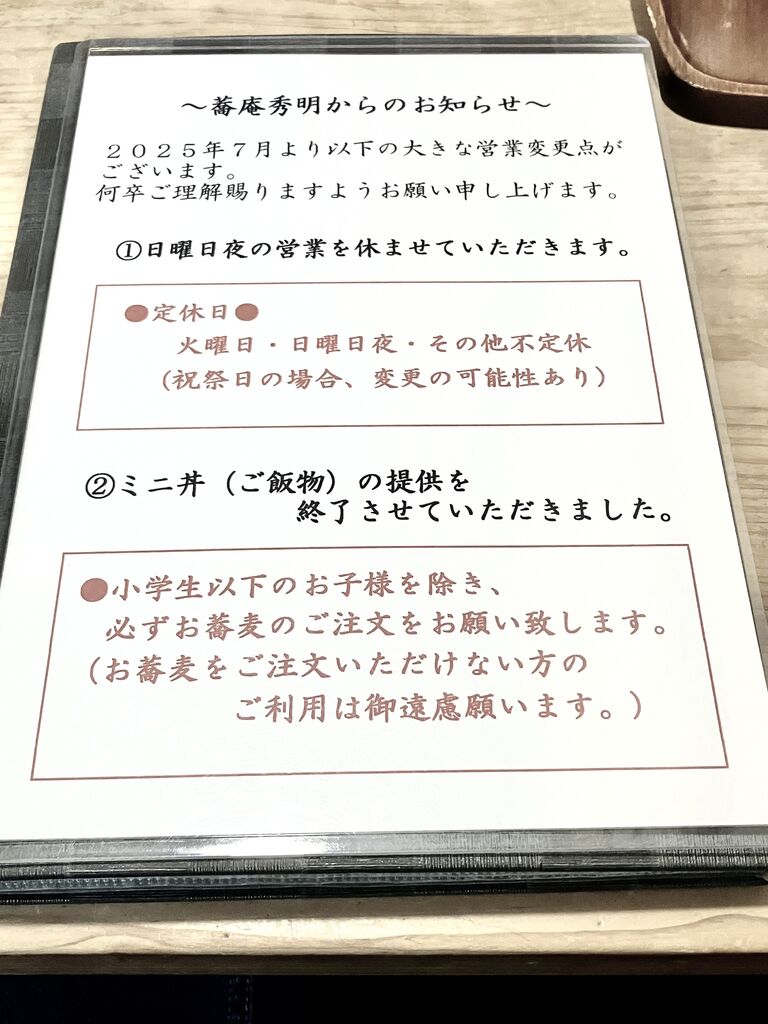 ～蕎庵秀明からのお知らせ～
２０２５年７月より以下の大きな営業変更点が
ございます。
何卒ご理解賜りますようお願い申し上げます。
①日曜日夜の営業を休ませていただきます。
●定休日●
火曜日・日曜日夜・その他不定休
（祝祭日の場合、変更の可能性あり）
②ミニ丼（ご飯物）の提供を
終了させていただきました。
●小学生以下のお子様を除き、
必ずお蕎麦のご注文をお願い致します。
（お蕎麦をご注文いただけない方の
ご利用は御遠慮願います。）